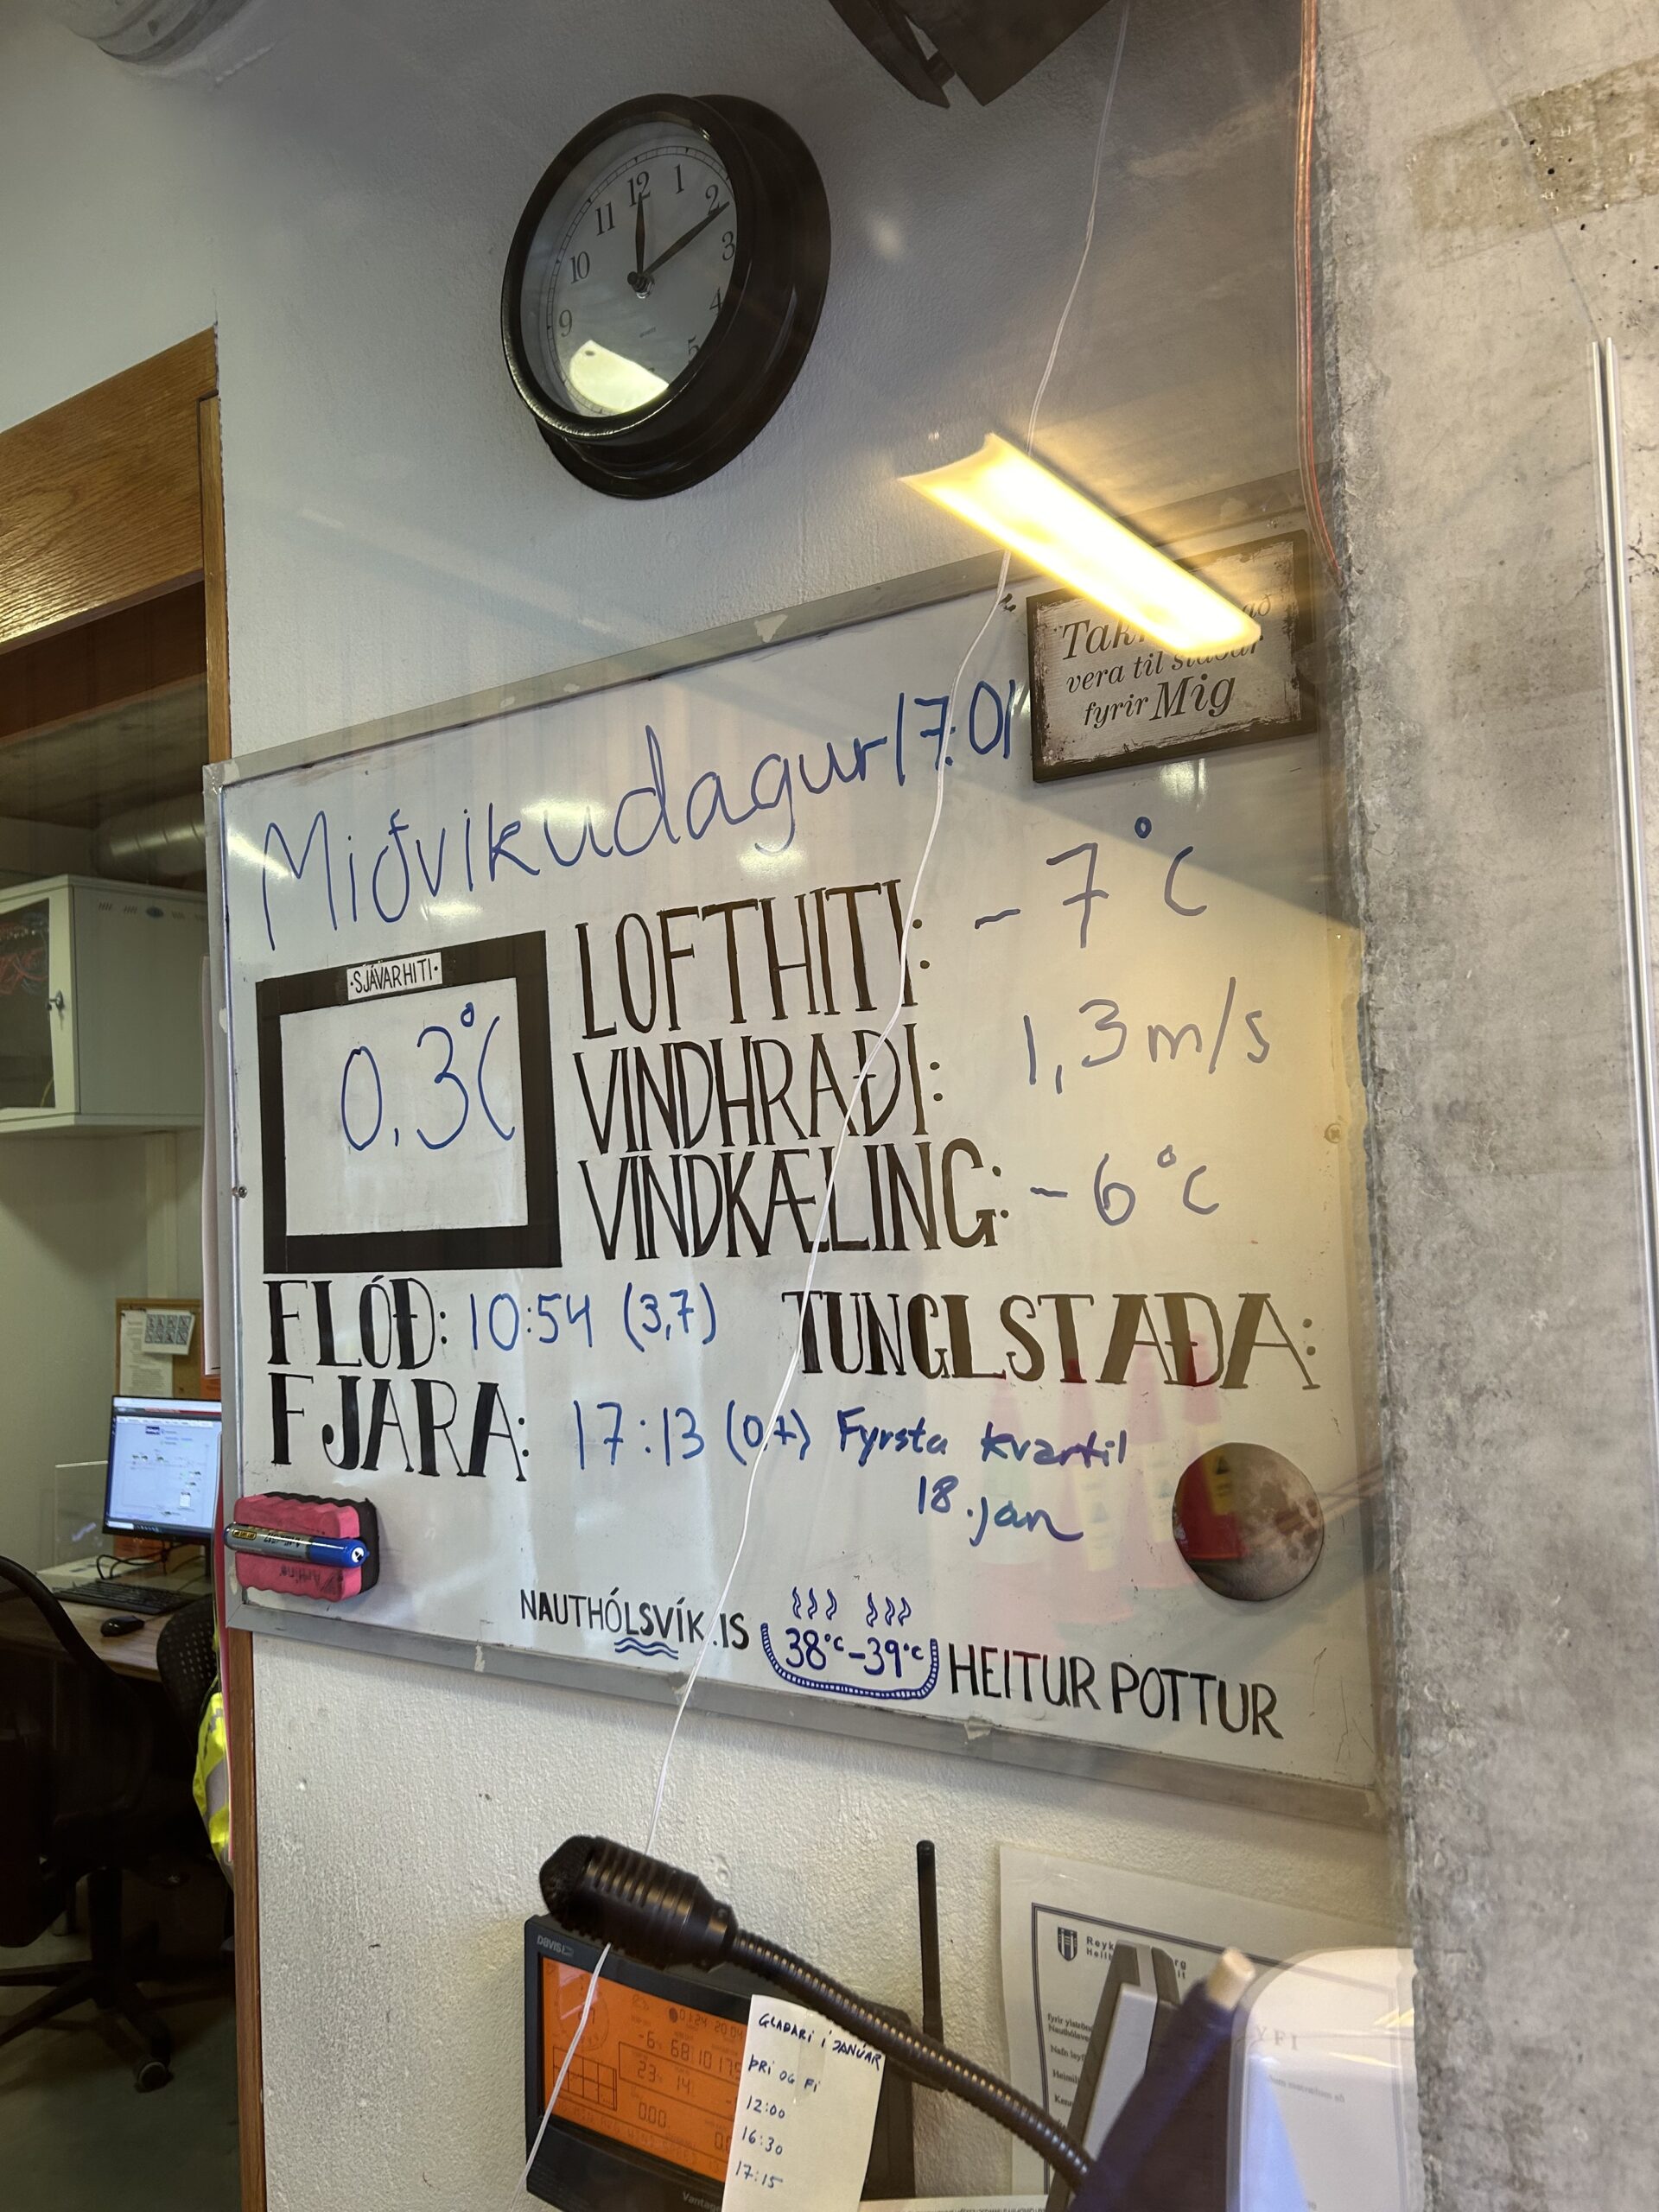 12
1
2
3
4
5
9
10
11
vera til
fyrir Mig
Miðvikudagur 17.01
·SJÁVARHITI·
0.3°C
LOFTHITI: -7°C
VINDHRAÐI: 1,3 m/s
VINDKÆLING: -6°C
FLÓÐ: 10:54 (3,7)
FJARA: 17:13
TUNGLSTAÐA:
Fyrsta kvartil
18. jan
NAUTHÓLSVÍK.IS
38°C-39°C
HEITUR POTTUR
DAVIS
GLAÐARI Í JANÚAR
ÞRI OG FI
12:00
16:30
17:15
Vantage